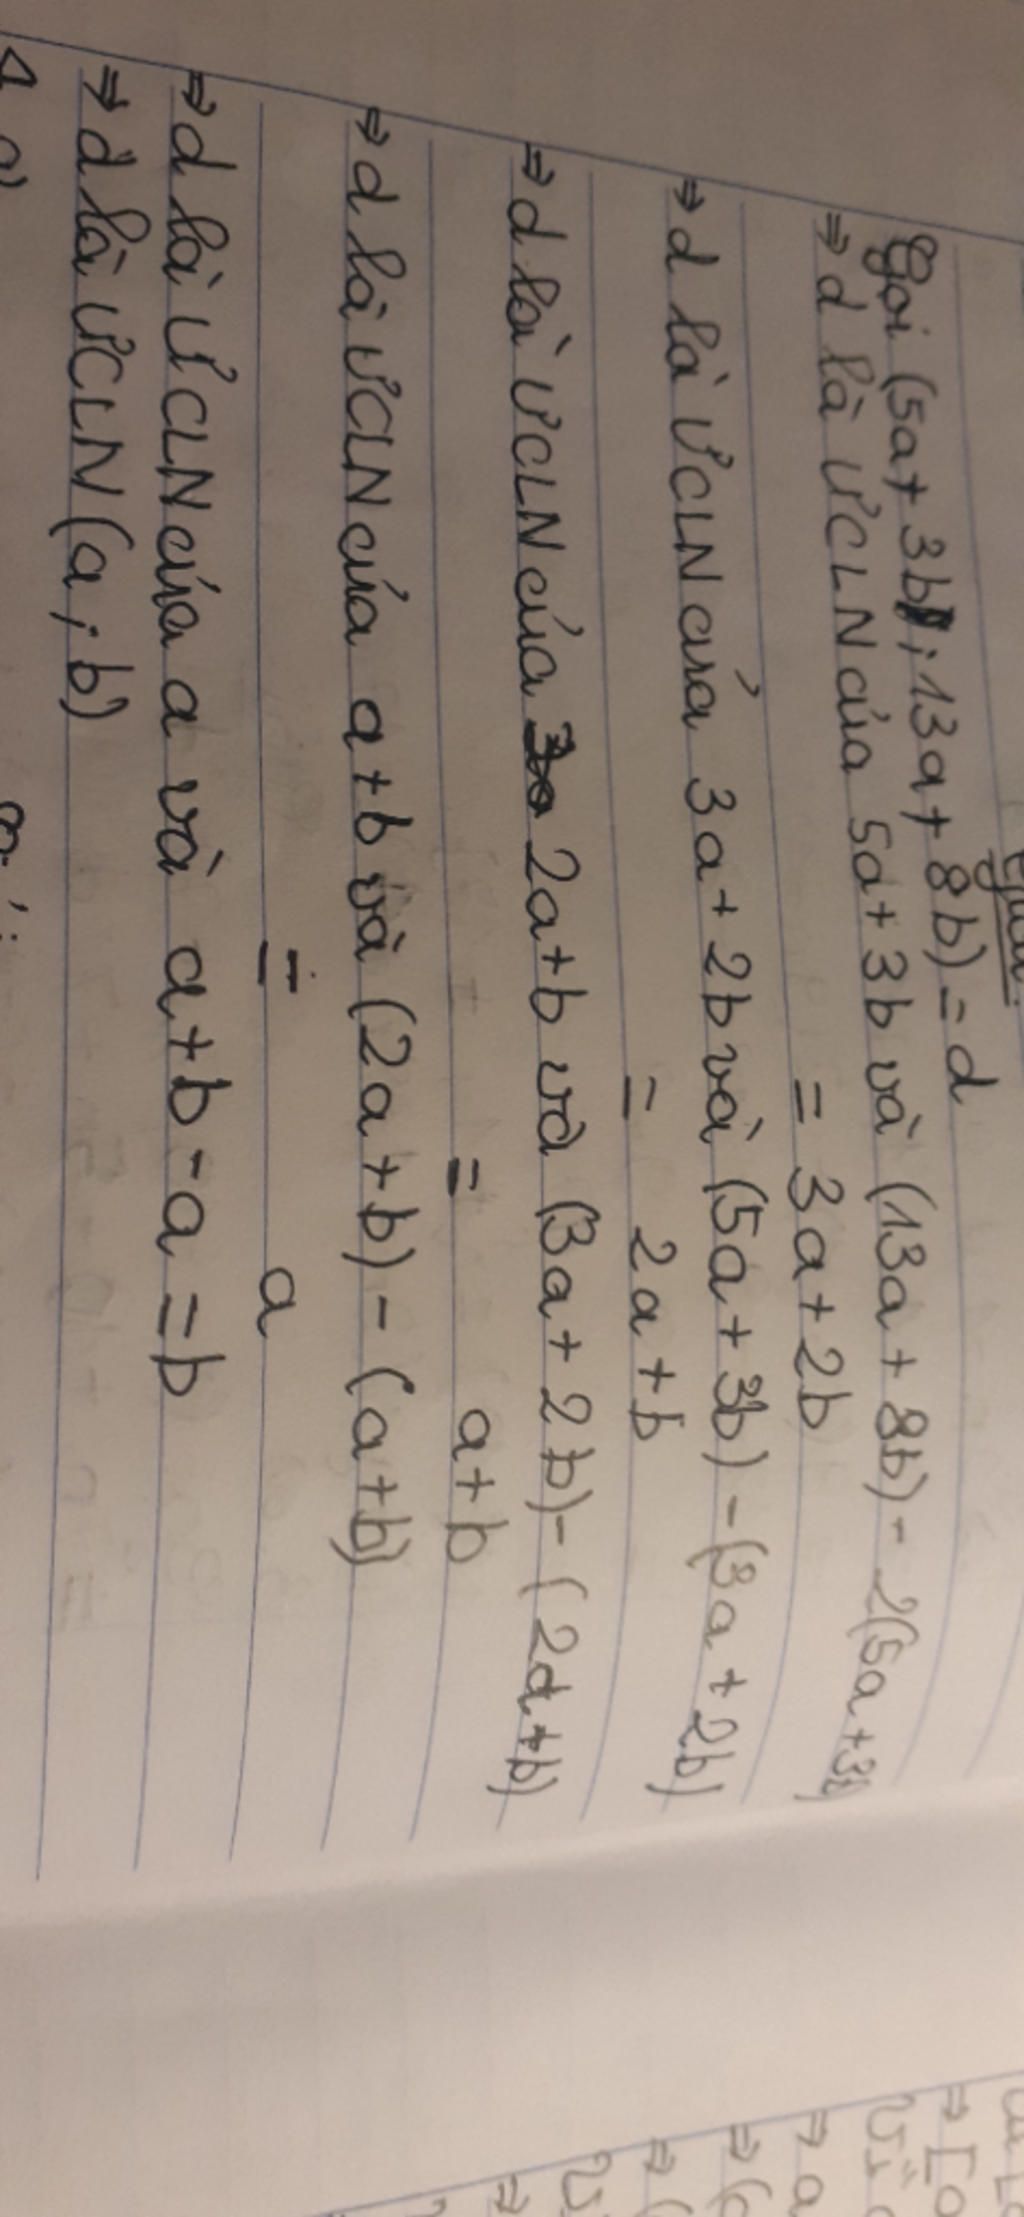 Gọi (5a+3b; 13a+8b) = d
⇒ d là ƯCLN của 5a+3b và (13a+8b) - 2(5a+3b)
= 3a+2b
⇒ d là ƯCLN của 3a+2b và (5a+3b) - (3a+2b)
= 2a+b
⇒ d là ƯCLN của 2a+b và (3a+2b) - (2a+b)
= a+b
⇒ d là ƯCLN của a+b và (2a+b) - (a+b)
= a
⇒ d là ƯCLN của a và a+b-a = b
⇒ d là ƯCLN (a; b)